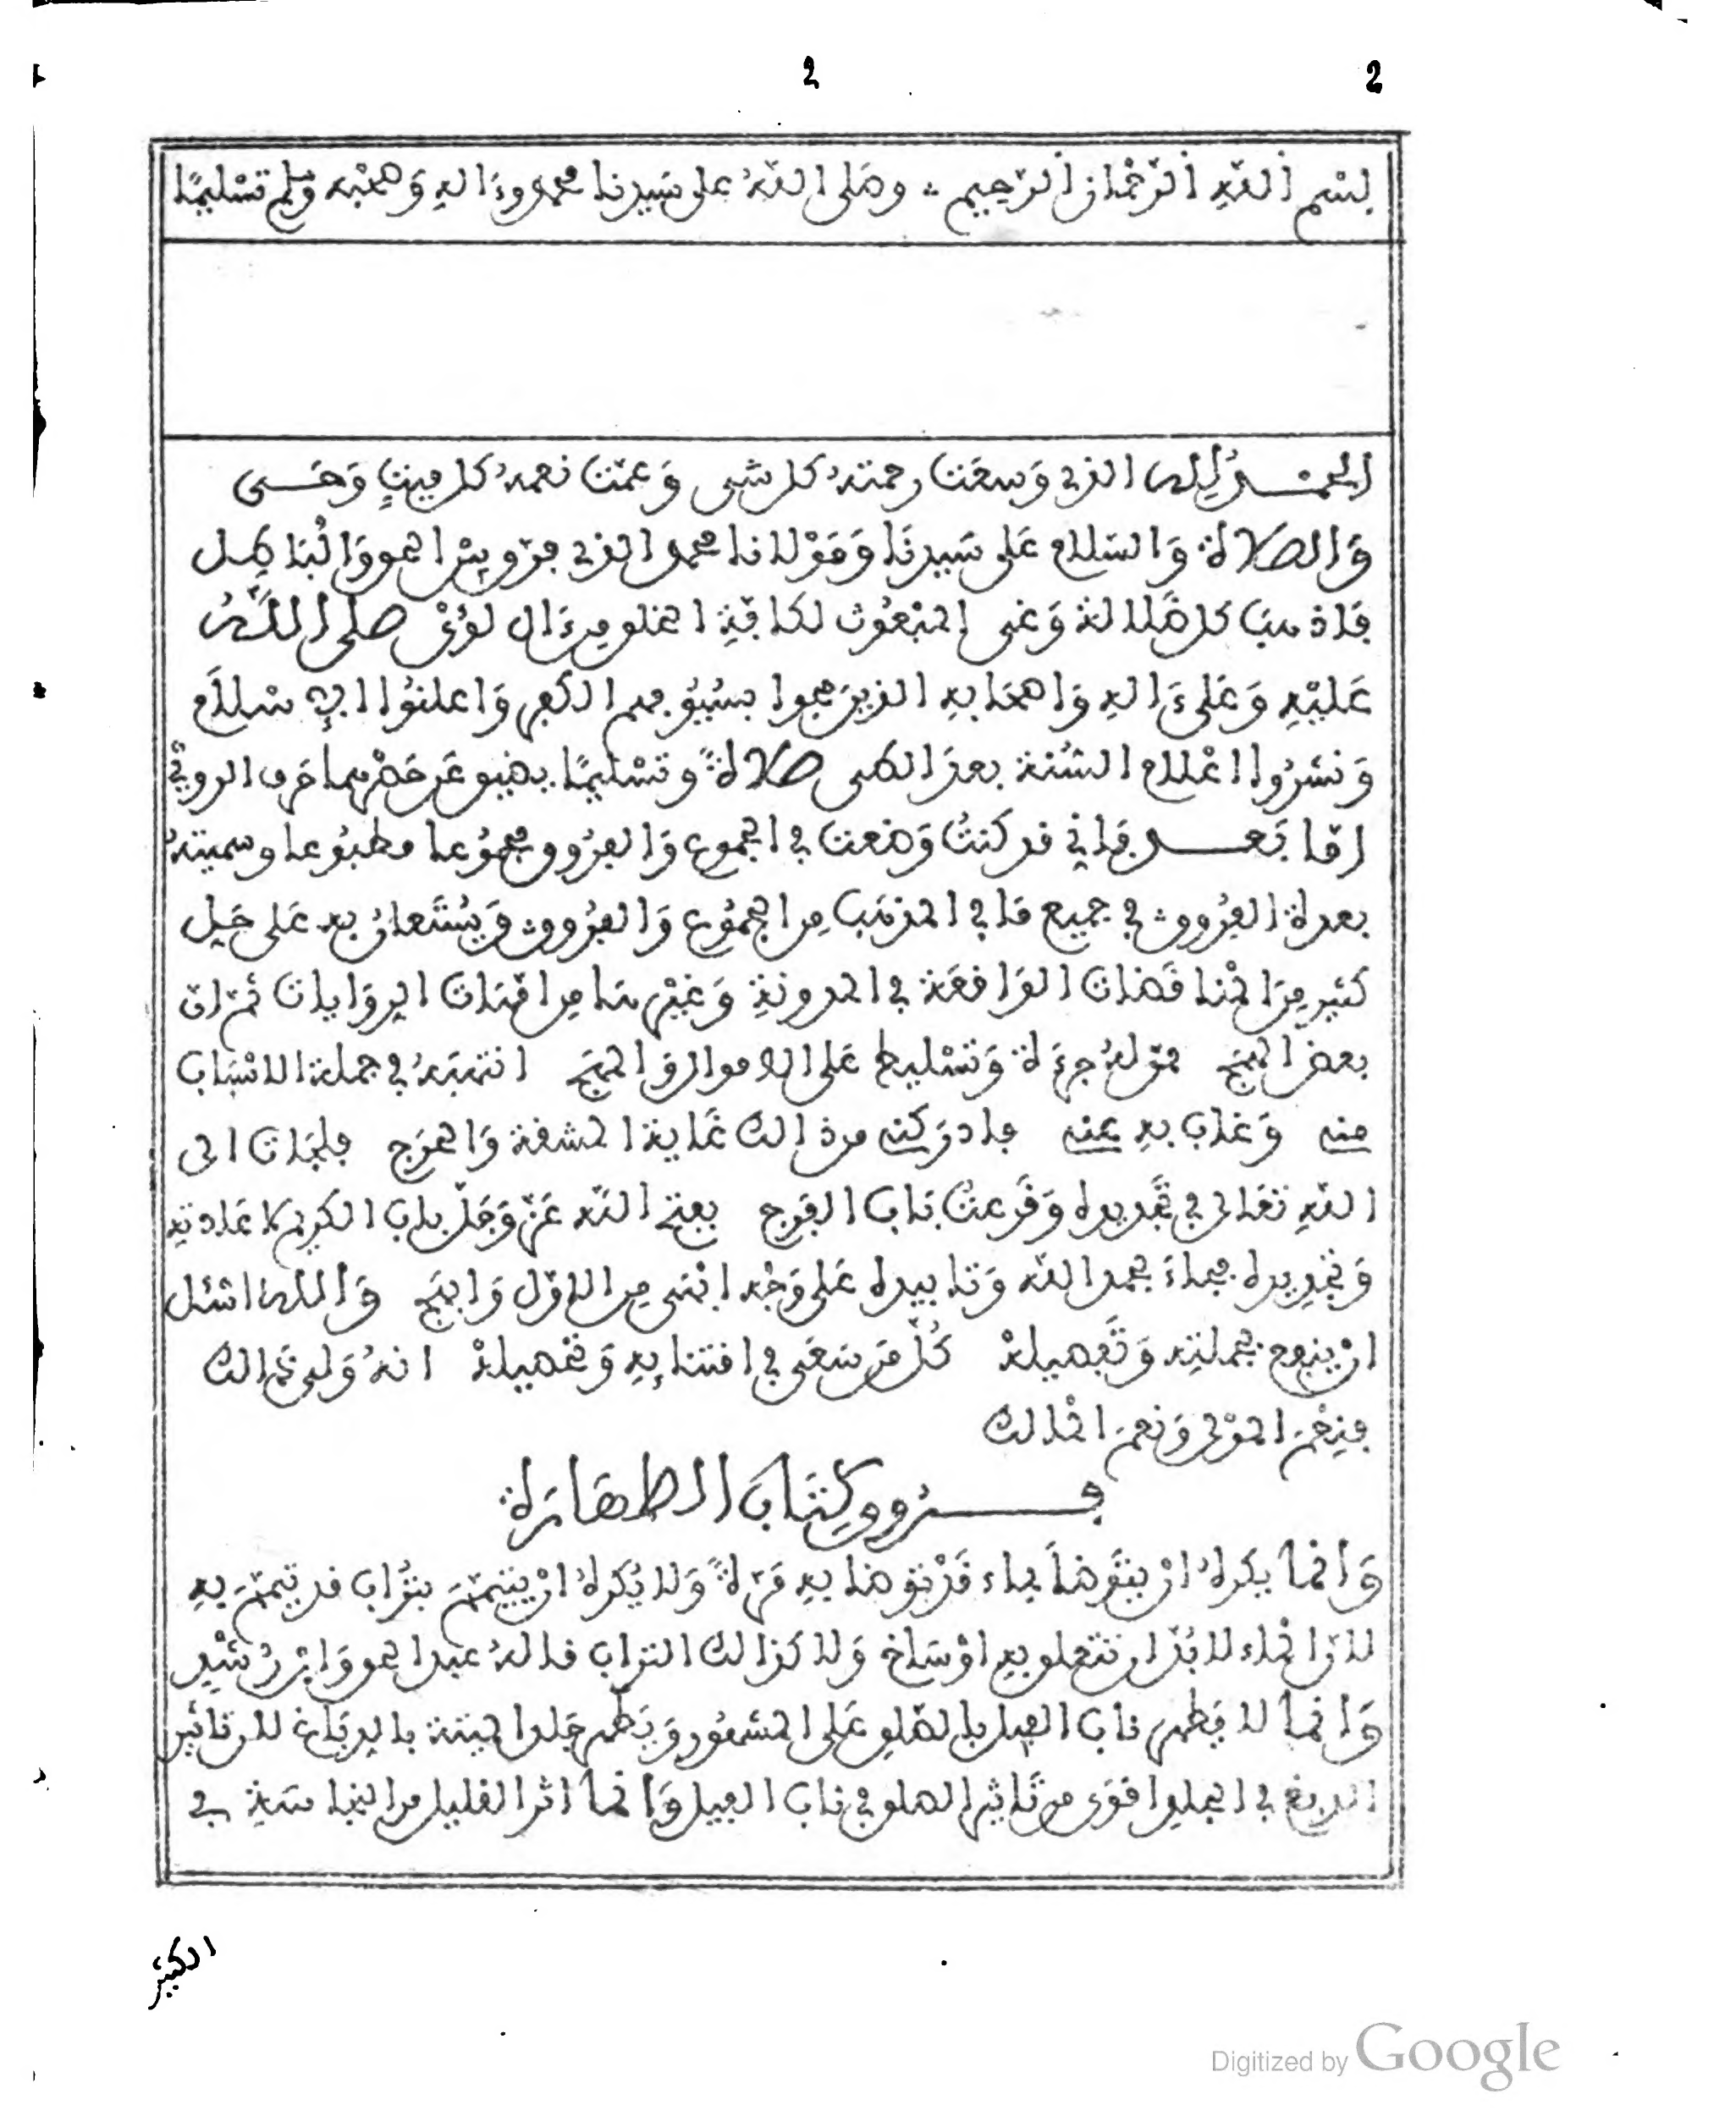 2 2
بسم الله الرحمان الرحيم وصلى الله على سيدنا محمد وءاله وصحبه وسلم تسليما
الحمد لله الذي وسعت رحمته كل شي وعمت نعمه كل ميت وحي
والصلاة والسلام على سيدنا ومولانا محمد الذي فرق بين الحق والباطل
فاذهب كل ضلالة وغي المبعوث لكافة الخلق من ءال لؤي صلى الله
عليه وعلى ءاله واصحابه الذين محوا بسيوفهم الكفر واعلنوا الاسلام
ونشروا اعلام السنة بعد الطي صلاة وتسليما يضيق عن حصرهما حرف الروي
اما بعد فاني قد كنت وضعت في الجموع والفروق مجموعا مطبوعا وسميته
بعدة الفروق في جميع ما في المذهب من الجموع والفروق ويستعان به على حل
كثير من المناقضات الواقعة في المدونة وغيرها من امهات الروايات ثم ان
بعض الهمج ممن له جرءة وتسليط على الاموال والمهج انتهبه في جملة الاسباب
منه وغاب به عنه فادركني من ذالك غاية المشقة والحرج فلجات الى
الله تعالى في تجديده وقرعت باب الفرج بفتح الله عز وجل باب الكريم كعادته
وتجديده فجاء بحمد الله وتاييده على وجه ابهى من الاول وابهج والله اسئل
ان ينفع بجملته وتفصيله كل من سعى في اقتنايه وتحصيله انه ولي ذالك
فنعم المولى ونعم المالك
فروق كتاب الطهارة
وانما يكره ان يتوضا بماء قد توضا به مرة ولا يكره ان يتيمم بتراب قد تيمم به
لان الماء لا بد ان تتعلق به اوساخ ولا كذالك التراب قاله عبد الحق وابن رشيد
وانما لا يطهر ناب الفيل بالصلق على المشهور ويطهر جلد الميتة بالدباغ لان تاثير
الدبغ في الجلد اقوى من تاثير الصلق في ناب الفيل وانما اثر القليل من النجاسة في
الكثير
Digitized by Google